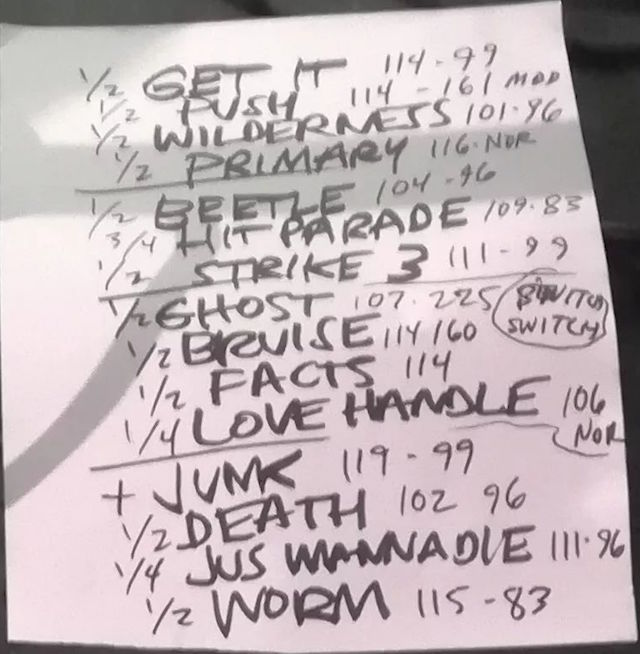 1/2 GET IT 114-99
1/2 PUSH 114-161 MOD
1/2 WILDERNESS 101-96
1/2 PRIMARY 116-NOR
1/2 BEETLE 104-96
3/4 HIT PARADE 109-83
1/2 STRIKE 3 111-99
1/2 GHOST 107-225 SWITCH
SWITCH
1/2 BRUISE 114/160
1/2 FACTS 114
1/4 LOVE HANDLE 106
NOR
+ JUNK 119-99
1/2 DEATH 102 96
1/4 JUS WANNA DIE 111-96
1/2 WORM 115-83